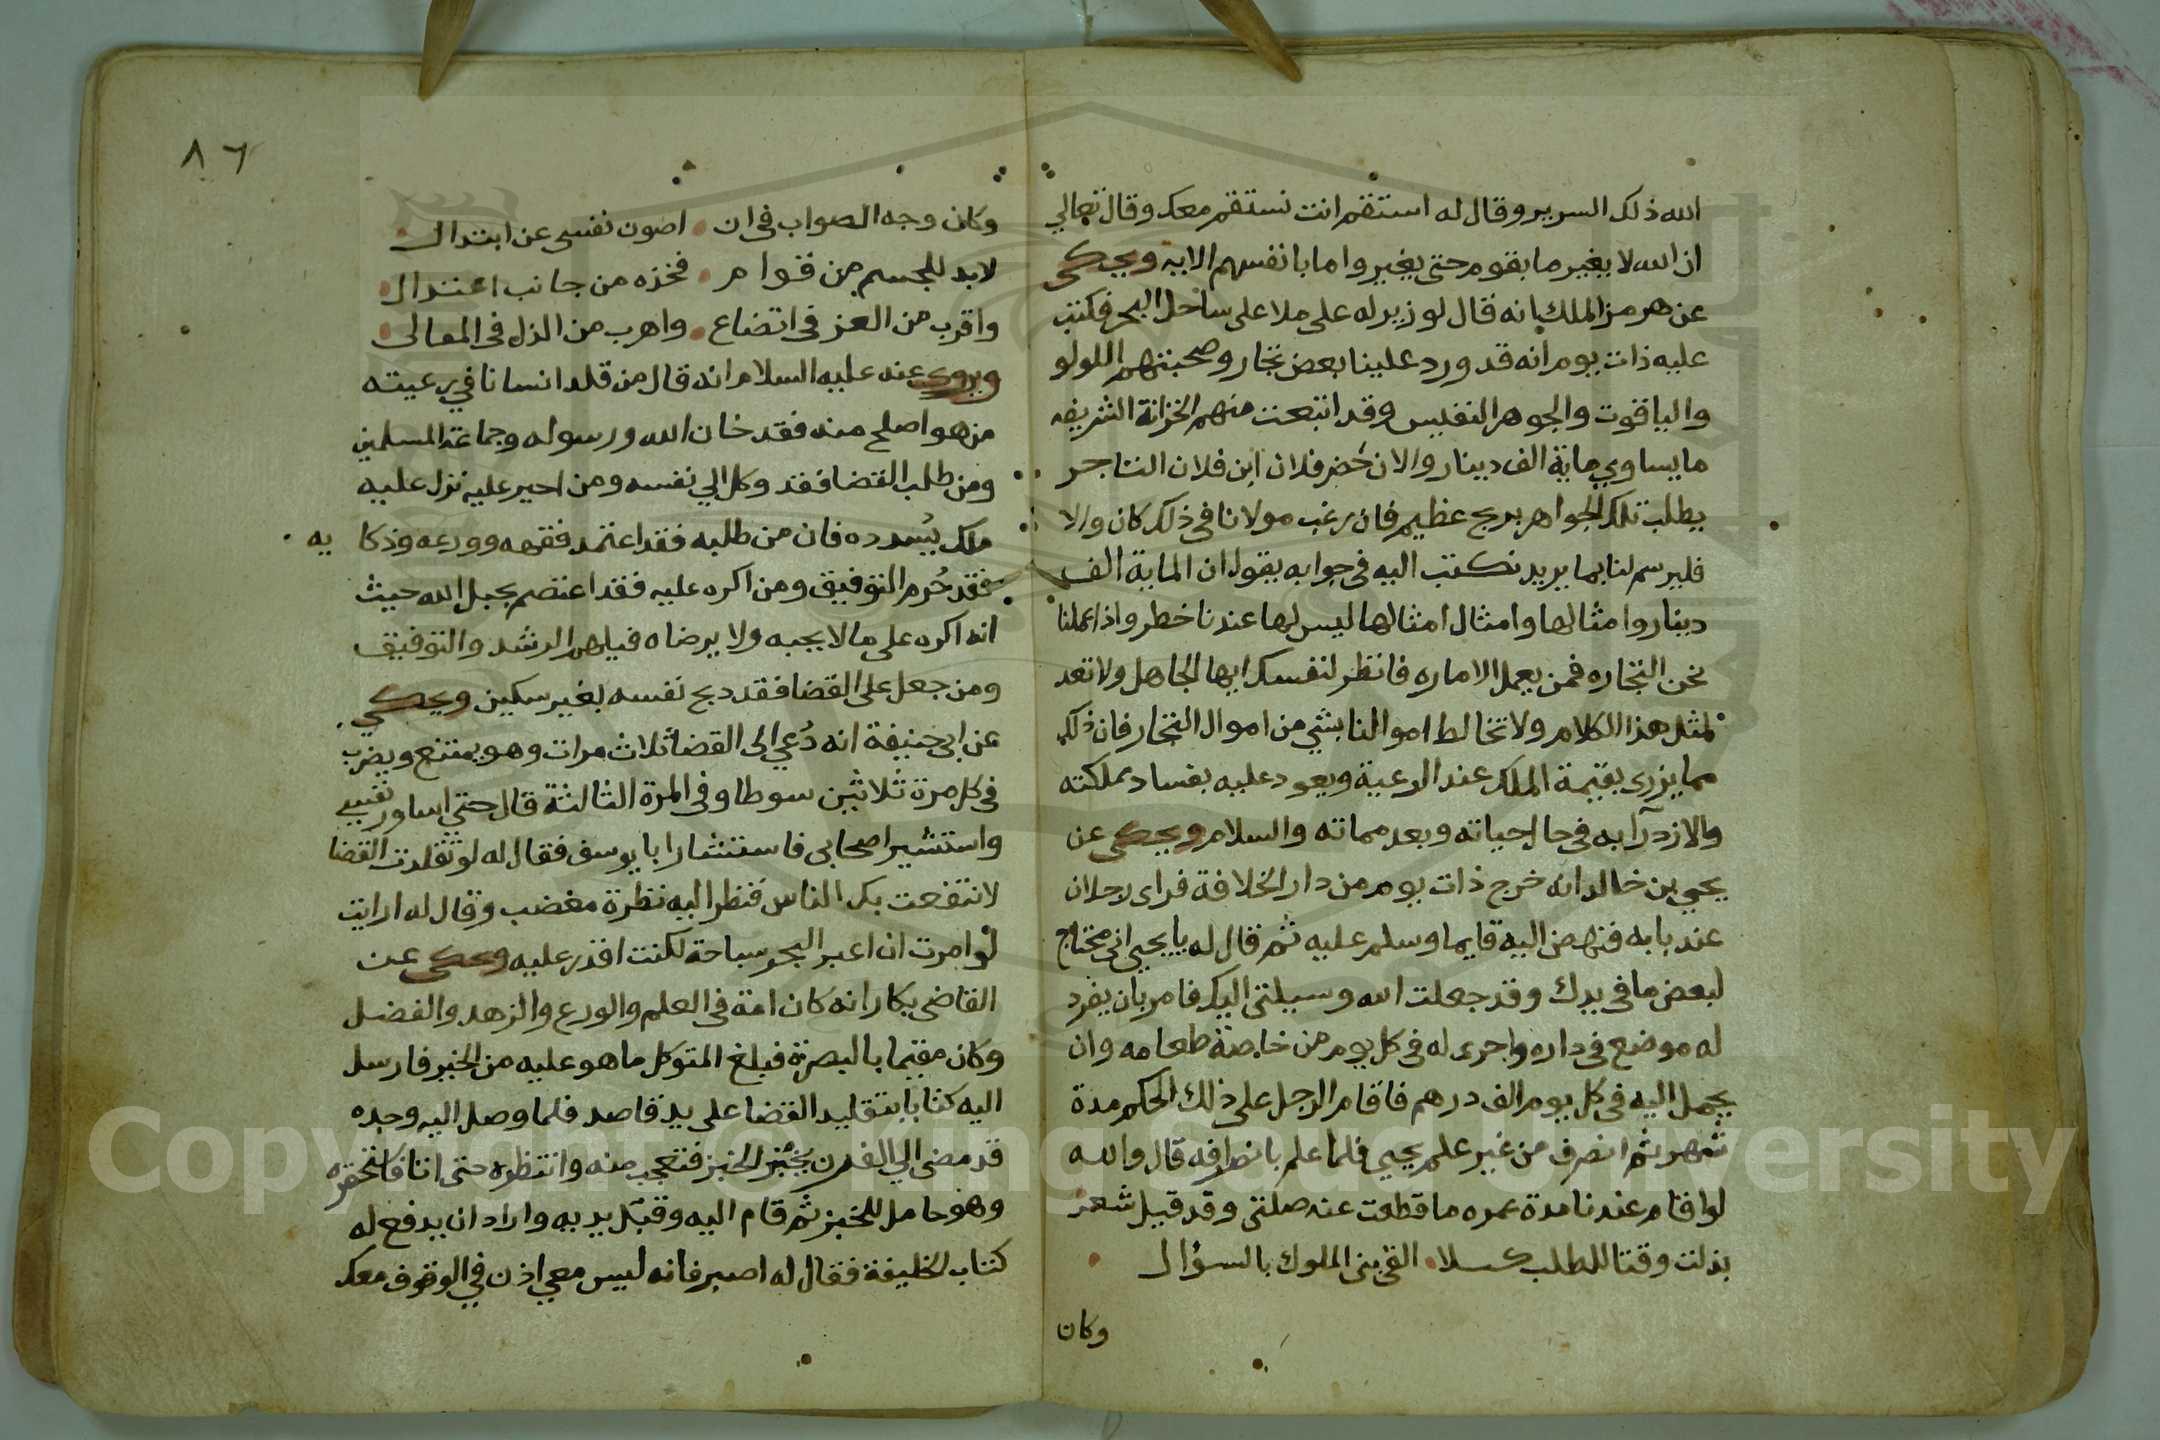 الله ذلك السرير وقال له استقم انت نستقم معك وقال تعالي
ان الله لا يغير ما بقوم حتى يغيروا ما بانفسهم الايه ويحكى
عن هرمز الملك بانه قال لوزير له على ملا على ساحل البحر فكتب
عليه ذات يوم انه قد ورد علينا بعض تجار وصحبتهم اللولو
والياقوت والجوهر النفيس وقد ابتعت منهم للخزانة الشريفه
ما يساوي ماية الف دينار والان حضر فلان ابن فلان التاجر
يطلب تلك الجواهر بربح عظيم فان رغب مولانا في ذلك كان والا
فليرسم لنا بما يريد فكتب اليه في جوابه يقول ان الماية الف
دينار وامثالها وامثال امثالها ليس لها عندنا خطر واذا عملنا
نحن التجاره فمن يعمل الاماره فانظر لنفسك ايها الجاهل ولا تعد
لمثل هذا الكلام ولا تخالط اموالنا بشي من اموال التجار فان ذلك
مما يزرى بقيمة الملك عند الرعية ويعود عليه بفساد مملكته
والازدرآ به في حال حياته وبعد مماته والسلام ويحكى عن
يحيي بن خالد انه خرج ذات يوم من دار الخلافة فراى رجلا ان
عند بابه فنهض اليه قايما وسلم عليه ثم قال له يا يحيي انى محتاج
لبعض ما في يدك وقد جعلت الله وسيلتى اليك فامر بان يفرد
له موضع في داره واجرى له في كل يوم من خاصة طعامه وان
يحمل اليه في كل يوم الف درهم فاقام الرجل على ذلك الحكم مدة
شهر ثم انصرف من غير علم يحيي فلما علم بانصرافه قال والله
لو اقام عندنا مدة عمره ما قطعت عنه صلتى وقد قيل شعر
بذلت وقتا للطلب كسلا القى بنى الملوك بالسؤال
وكان
٨٦
وكان وجه الصواب في ان اصون نفسى عن ابتدال
لابد للجسم من قوام فخذه من جانب اعتدال
واقرب من العز في اتضاع واهرب من الذل في المعالى
ويروى عنه عليه السلام انه قال من قلد انسانا في رعيته
من هو اصلح منه فقد خان الله ورسوله وجماعة المسلمين
ومن طلب القضا فقد وكل الي نفسه ومن اجبر عليه نزل عليه
ملك يُسدده فان من طلبه فقد اعتمد فقهه وورعه وذكا يه
فقد حُرم التوفيق ومن اكره عليه فقد اعتصم بحبل الله حيث
انه اكره على ما لا يحبه ولا يرضاه فيلهم الرشد والتوفيق
ومن جعل على القضا فقد دبح نفسه بغير سكين ويحكي
عن ابى حنيفة انه دُعي الى القضا ثلاث مرات وهو يمتنع ويضرب
في كل مرة ثلاثين سوطا وفي المرة الثالثة قال حتى اساور نفسي
واستشير اصحابى فاستشار ابا يوسف فقال له لو تقلدت القضا
لانتفعت بك الناس فنظر اليه نظرة مغضب وقال له ارايت
لو امرت ان اعبر البحر سباحة لكنت اقدر عليه وحكى عن
القاضى بكار انه كان امة في العلم والورع والزهد والفضل
وكان مقيما بالبصرة فبلغ المتوكل ما هو عليه من الخير فارسل
اليه كتابا بتقليد القضا على يد قاصد فلما وصل اليه وجده
قد مضى الي الفرن يخبز الخبز فتعجب منه وانتظره حتى اتا فاستحقره
وهو حامل للخبز ثم قام اليه وقبّل يديه واراد ان يدفع له
كتاب الخليفة فقال له اصبر فانه ليس معي اذن في الوقوف معك
Copyright © King Saud University